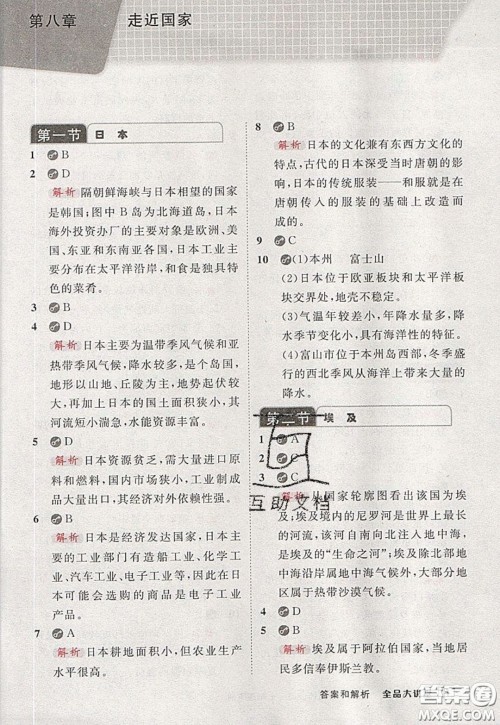 第八章
走近国家
第一节 日本
1 B
2 D
解析 隔朝鲜海峡与日本相望的国家
是韩国;图中B岛为北海道岛,日本
海外投资办厂的主要对象是欧洲、美
国、东亚和东南亚各国。日本工业主
要分布在太平洋沿岸,其特色食物是
色的菜肴。
3 B
4 D
解析 日本主要为温带季风气候和亚
热带季风气候,降水多,是个岛国,
地形以山地、丘陵为主,地势起伏较
大,再加上日本国土面积狭小,其
河流短小湍急,水能资源丰富。
5 D
解析 日本资源贫乏,需大量进口
原料和燃料,而国内市场狭小,工业制成
品大量出口,对外依赖性很强。
6 B
解析 日本是经济发达国家,日本主
要的工业部门有造船工业、化学工
业、汽车工业、电子工业等,因此在
该国可能会选购的商品是电子工业
产品。
7 A
解析 日本耕地面积小,但农业生产
水平很高。
8 B
解析 日本的文化兼有东西方文化的
特点,古代的日本深受当时唐朝的
影响,日本的传统服装——和服就是在
唐朝传入的服装的基础上改造而
成的。
9 C
10 (1)本州 富士山
(2)日本位于欧亚板块和太平洋板
块交界处,地壳不稳定。
(3)气温年较差小,年降水量多,降
水季节变化小,具有海洋性的特征。
(4)富山市位于本州岛西部,冬季盛
行的西北季风从海洋上带来大量的
降水。
第二节 埃及
1 A
2 C
3 C
解析 从国家轮廓图看出该国为埃
及,埃及境内的尼罗河是世界最长的
河流,该河自南向北注入地中海,是
埃及的“生命之河”。埃及除北部地
中海沿岸属于地中海气候外,其余大部分
地区属于热带沙漠气候。
4 D
5 B
解析 埃及属于阿拉伯国家,当地居
民多信奉伊斯兰教。
互助文档
答案和解析 全品大讲
答案圈
MXQE.COM